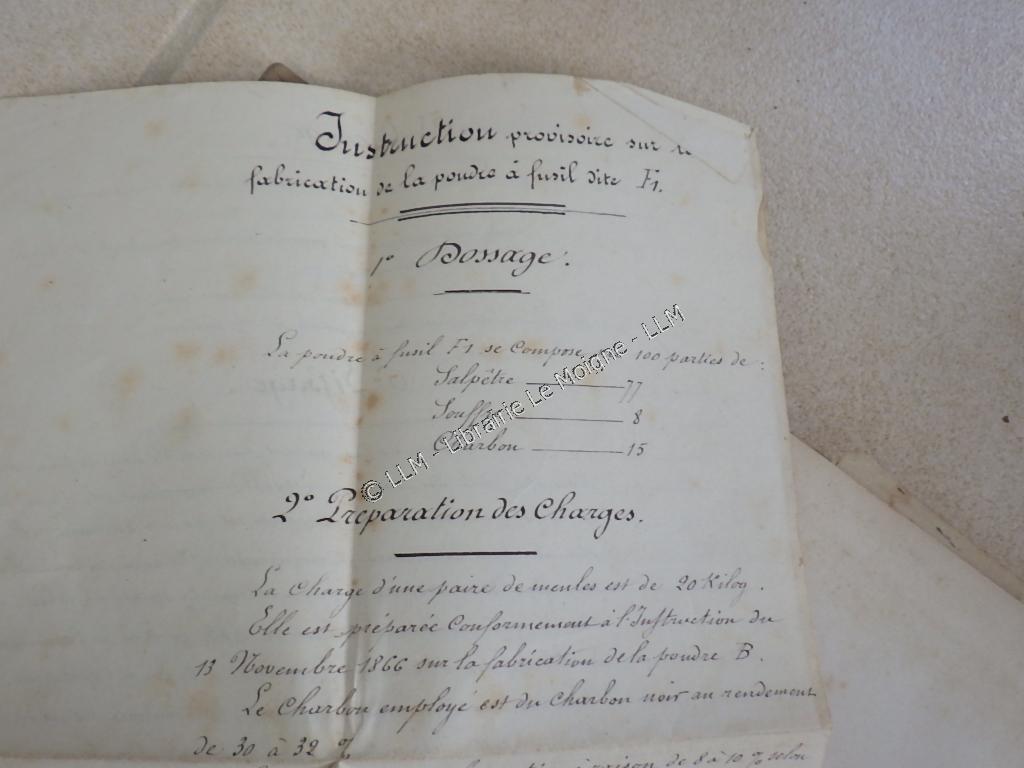 Instruction provisoire sur
fabrication de la poudre à fusil dite F1.
1° Dossage.
La poudre à fusil F1 se compose 100 parties de :
Salpêtre 77
Souffre 8
Charbon 15
© LLM - Librairie Le Moigne - LLM
2° Préparation des Charges.
La Charge d'une paire de meules est de 20 Kilog.
Elle est préparée Conformement à l'Instruction du
13 Novembre 1866 sur la fabrication de la poudre B.
Le Charbon employé est du Charbon noir au rendement
de 30 à 32 %
à raison de 8 à 10 % selon